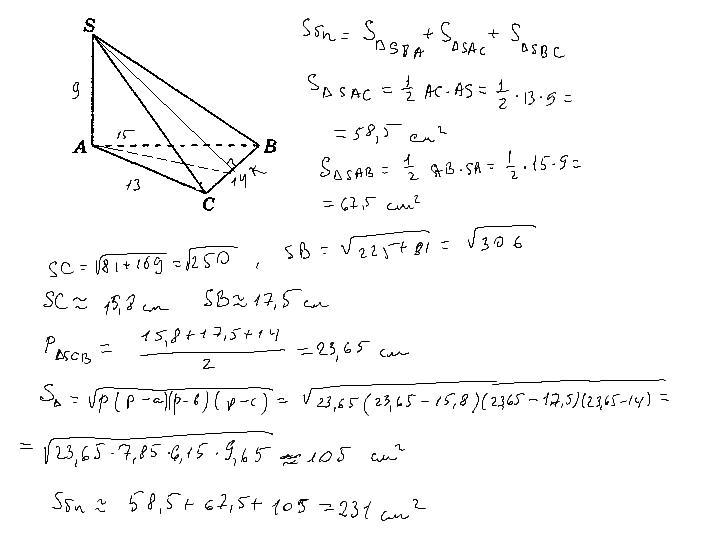 S
9
15
A
B
13
14 K
C
Sбп = S△SBA + S△SAC + S△SBC
S△SAC = 1/2 AC·AS = 1/2 · 13 · 9 =
= 58,5 см²
S△SAB = 1/2 AB·SA = 1/2 · 15 · 9 =
= 67,5 см²
SC = √81+169 = √250 , SB = √225+81 = √306
SC ≈ 15,8 см SB ≈ 17,5 см
P△SCB = (15,8+17,5+14)/2 = 23,65 см
S△ = √p(p-a)(p-b)(p-c) = √23,65(23,65-15,8)(23,65-17,5)(23,65-14) =
= √23,65·7,85·6,15·9,65 ≈ 105 см²
Sбп ≈ 58,5+67,5+105 = 231 см²